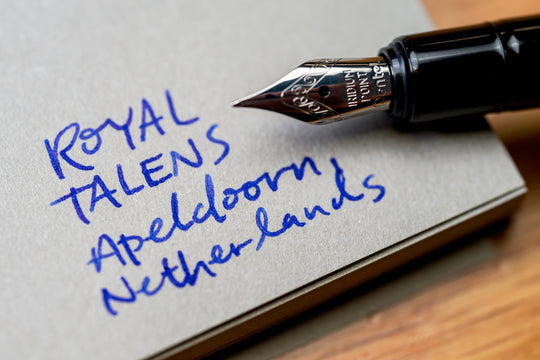 ROYAL
TALENS
Apeldoorn,
Netherlands
IRIDIUM
POINT